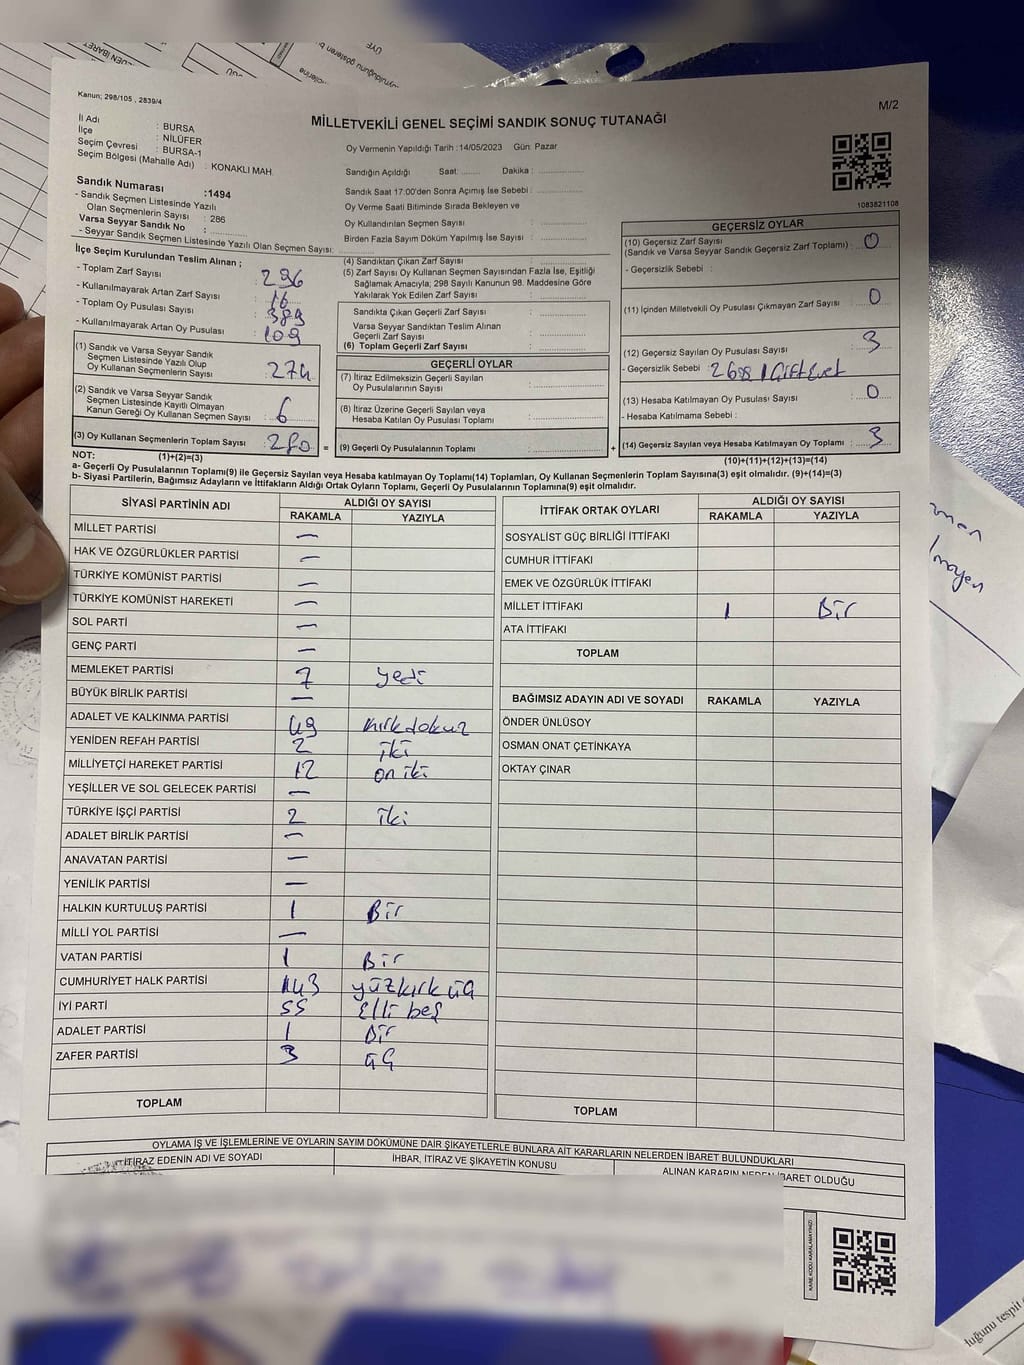 Kanun; 298/105 , 2839/4
M/2
MİLLETVEKİLİ GENEL SEÇİMİ SANDIK SONUÇ TUTANAĞI
İl Adı : BURSA
İlçe : NİLÜFER
Seçim Çevresi : BURSA-1
Seçim Bölgesi (Mahalle Adı) : KONAKLI MAH.
Sandık Numarası :1494
- Sandık Seçmen Listesinde Yazılı
Olan Seçmenlerin Sayısı : 286
Varsa Seyyar Sandık No :
- Seyyar Sandık Seçmen Listesinde Yazılı Olan Seçmen Sayısı:
Oy Vermenin Yapıldığı Tarih :14/05/2023 Gün: Pazar
Sandığın Açıldığı Saat: Dakika :
Sandık Saat 17:00'den Sonra Açımış İse Sebebi :
Oy Verme Saati Bitiminde Sırada Bekleyen ve
Oy Kullandırılan Seçmen Sayısı :
Birden Fazla Sayım Döküm Yapılmış İse Sayısı :
1083821108
İlçe Seçim Kurulundan Teslim Alınan ;
- Toplam Zarf Sayısı : 296
- Kullanılmayarak Artan Zarf Sayısı : 16
- Toplam Oy Pusulası Sayısı : 389
- Kullanılmayarak Artan Oy Pusulası : 109
(1) Sandık ve Varsa Seyyar Sandık
Seçmen Listesinde Yazılı Olup
Oy Kullanan Seçmenlerin Sayısı : 274
(2) Sandık ve Varsa Seyyar Sandık
Seçmen Listesinde Kayıtlı Olmayan
Kanun Gereği Oy Kullanan Seçmen Sayısı : 6
(3) Oy Kullanan Seçmenlerin Toplam Sayısı : 280 =
(4) Sandıktan Çıkan Zarf Sayısı :
(5) Zarf Sayısı Oy Kullanan Seçmen Sayısından Fazla İse, Eşitliği
Sağlamak Amacıyla; 298 Sayılı Kanunun 98. Maddesine Göre
Yakılarak Yok Edilen Zarf Sayısı :
Sandıkta Çıkan Geçerli Zarf Sayısı :
Varsa Seyyar Sandıktan Teslim Alınan
Geçerli Zarf Sayısı :
(6) Toplam Geçerli Zarf Sayısı :
GEÇERLİ OYLAR
(7) İtiraz Edilmeksizin Geçerli Sayılan
Oy Pusulalarının Sayısı :
(8) İtiraz Üzerine Geçerli Sayılan veya
Hesaba Katılan Oy Pusulası Toplamı :
(9) Geçerli Oy Pusulalarının Toplamı : +
GEÇERSİZ OYLAR
(10) Geçersiz Zarf Sayısı
(Sandık ve Varsa Seyyar Sandık Geçersiz Zarf Toplamı) : 0
- Geçersizlik Sebebi :
(11) İçinden Milletvekili Oy Pusulası Çıkmayan Zarf Sayısı : 0
(12) Geçersiz Sayılan Oy Pusulası Sayısı : 3
- Geçersizlik Sebebi :
(13) Hesaba Katılmayan Oy Pusulası Sayısı : 0
- Hesaba Katılmama Sebebi :
(14) Geçersiz Sayılan veya Hesaba Katılmayan Oy Toplamı : 3
NOT: (1)+(2)=(3) (10)+(11)+(12)+(13)=(14)
a- Geçerli Oy Pusulalarının Toplamı(9) ile Geçersiz Sayılan veya Hesaba katılmayan Oy Toplamı(14) Toplamları, Oy Kullanan Seçmenlerin Toplam Sayısına(3) eşit olmalıdır. (9)+(14)=(3)
b- Siyasi Partilerin, Bağımsız Adayların ve İttifakların Aldığı Ortak Oyların Toplamı, Geçerli Oy Pusulalarının Toplamına(9) eşit olmalıdır.
SİYASİ PARTİNİN ADI ALDIĞI OY SAYISI
RAKAMLA YAZIYLA
MİLLET PARTİSİ —
HAK VE ÖZGÜRLÜKLER PARTİSİ —
TÜRKİYE KOMÜNİST PARTİSİ —
TÜRKİYE KOMÜNİST HAREKETİ —
SOL PARTİ —
GENÇ PARTİ —
MEMLEKET PARTİSİ 7 yedi
BÜYÜK BİRLİK PARTİSİ —
ADALET VE KALKINMA PARTİSİ 49 kırkdokuz
YENİDEN REFAH PARTİSİ 2 iki
MİLLİYETÇİ HAREKET PARTİSİ 12 on iki
YEŞİLLER VE SOL GELECEK PARTİSİ —
TÜRKİYE İŞÇİ PARTİSİ 2 iki
ADALET BİRLİK PARTİSİ —
ANAVATAN PARTİSİ —
YENİLİK PARTİSİ —
HALKIN KURTULUŞ PARTİSİ 1 Bir
MİLLİ YOL PARTİSİ —
VATAN PARTİSİ 1 Bir
CUMHURİYET HALK PARTİSİ 143 yüzkırk üç
İYİ PARTİ 55 Elli beş
ADALET PARTİSİ 1 Bir
ZAFER PARTİSİ 3 üç
TOPLAM
İTTİFAK ORTAK OYLARI ALDIĞI OY SAYISI
RAKAMLA YAZIYLA
SOSYALİST GÜÇ BİRLİĞİ İTTİFAKI
CUMHUR İTTİFAKI
EMEK VE ÖZGÜRLÜK İTTİFAKI
MİLLET İTTİFAKI 1 Bir
ATA İTTİFAKI
TOPLAM
BAĞIMSIZ ADAYIN ADI VE SOYADI RAKAMLA YAZIYLA
ÖNDER ÜNLÜSOY
OSMAN ONAT ÇETİNKAYA
OKTAY ÇINAR
TOPLAM
OYLAMA İŞ VE İŞLEMLERİNE VE OYLARIN SAYIM DÖKÜMÜNE DAİR ŞİKAYETLERLE BUNLARA AİT KARARLARIN NELERDEN İBARET BULUNDUKLARI
İTİRAZ EDENİN ADI VE SOYADI İHBAR, İTİRAZ VE ŞİKAYETİN KONUSU ALINAN KARARIN NEDEN İBARET OLDUĞU
KARE KODU KARALAMAYINIZ!
luğunu tespit